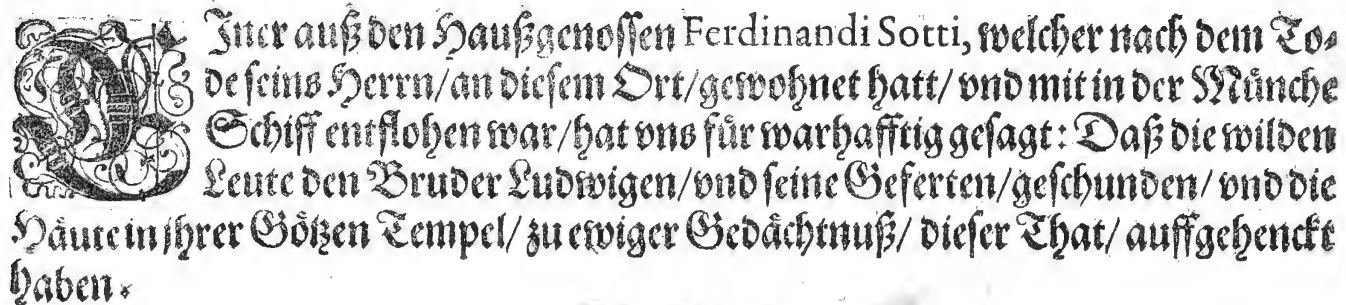 EIner auß den Haußgenossen Ferdinandi Sotti, welcher nach dem To⸗
de seins Herrn/an diesem Ort/gewohnet hatt/ vnd mit in der Münche
Schiff entflohen war/hat vns für warhafftig gesagt: Daß die wilden
Leute den Bruder Ludwigen/vnd seine Geferten/geschunden/ vnd die
Häute in jhrer Götzen Tempel/ zu ewiger Gedächtnuß/ dieser That/ auffgehenckt
haben.